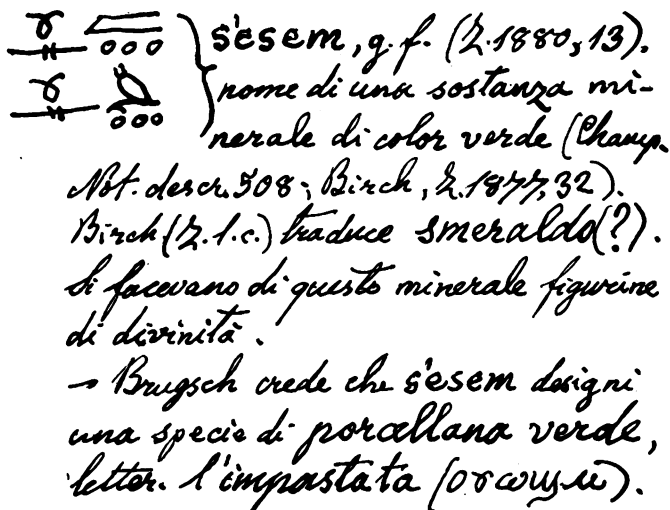 s'esem, g. f. (Z. 1880, 13).
nome di una sostanza mi-
nerale di color verde (Champ.
Not. descr. 508; Birch, Z. 1877, 32).
Birch (Z. l. c.) traduce smeraldo (?).
Si facevano di questo minerale figurine
di divinità.
→ Brugsch crede che s'esem designi
una specie di porcellana verde,
letter. l'impastata (ⲟⲩⲱϣⲙ).